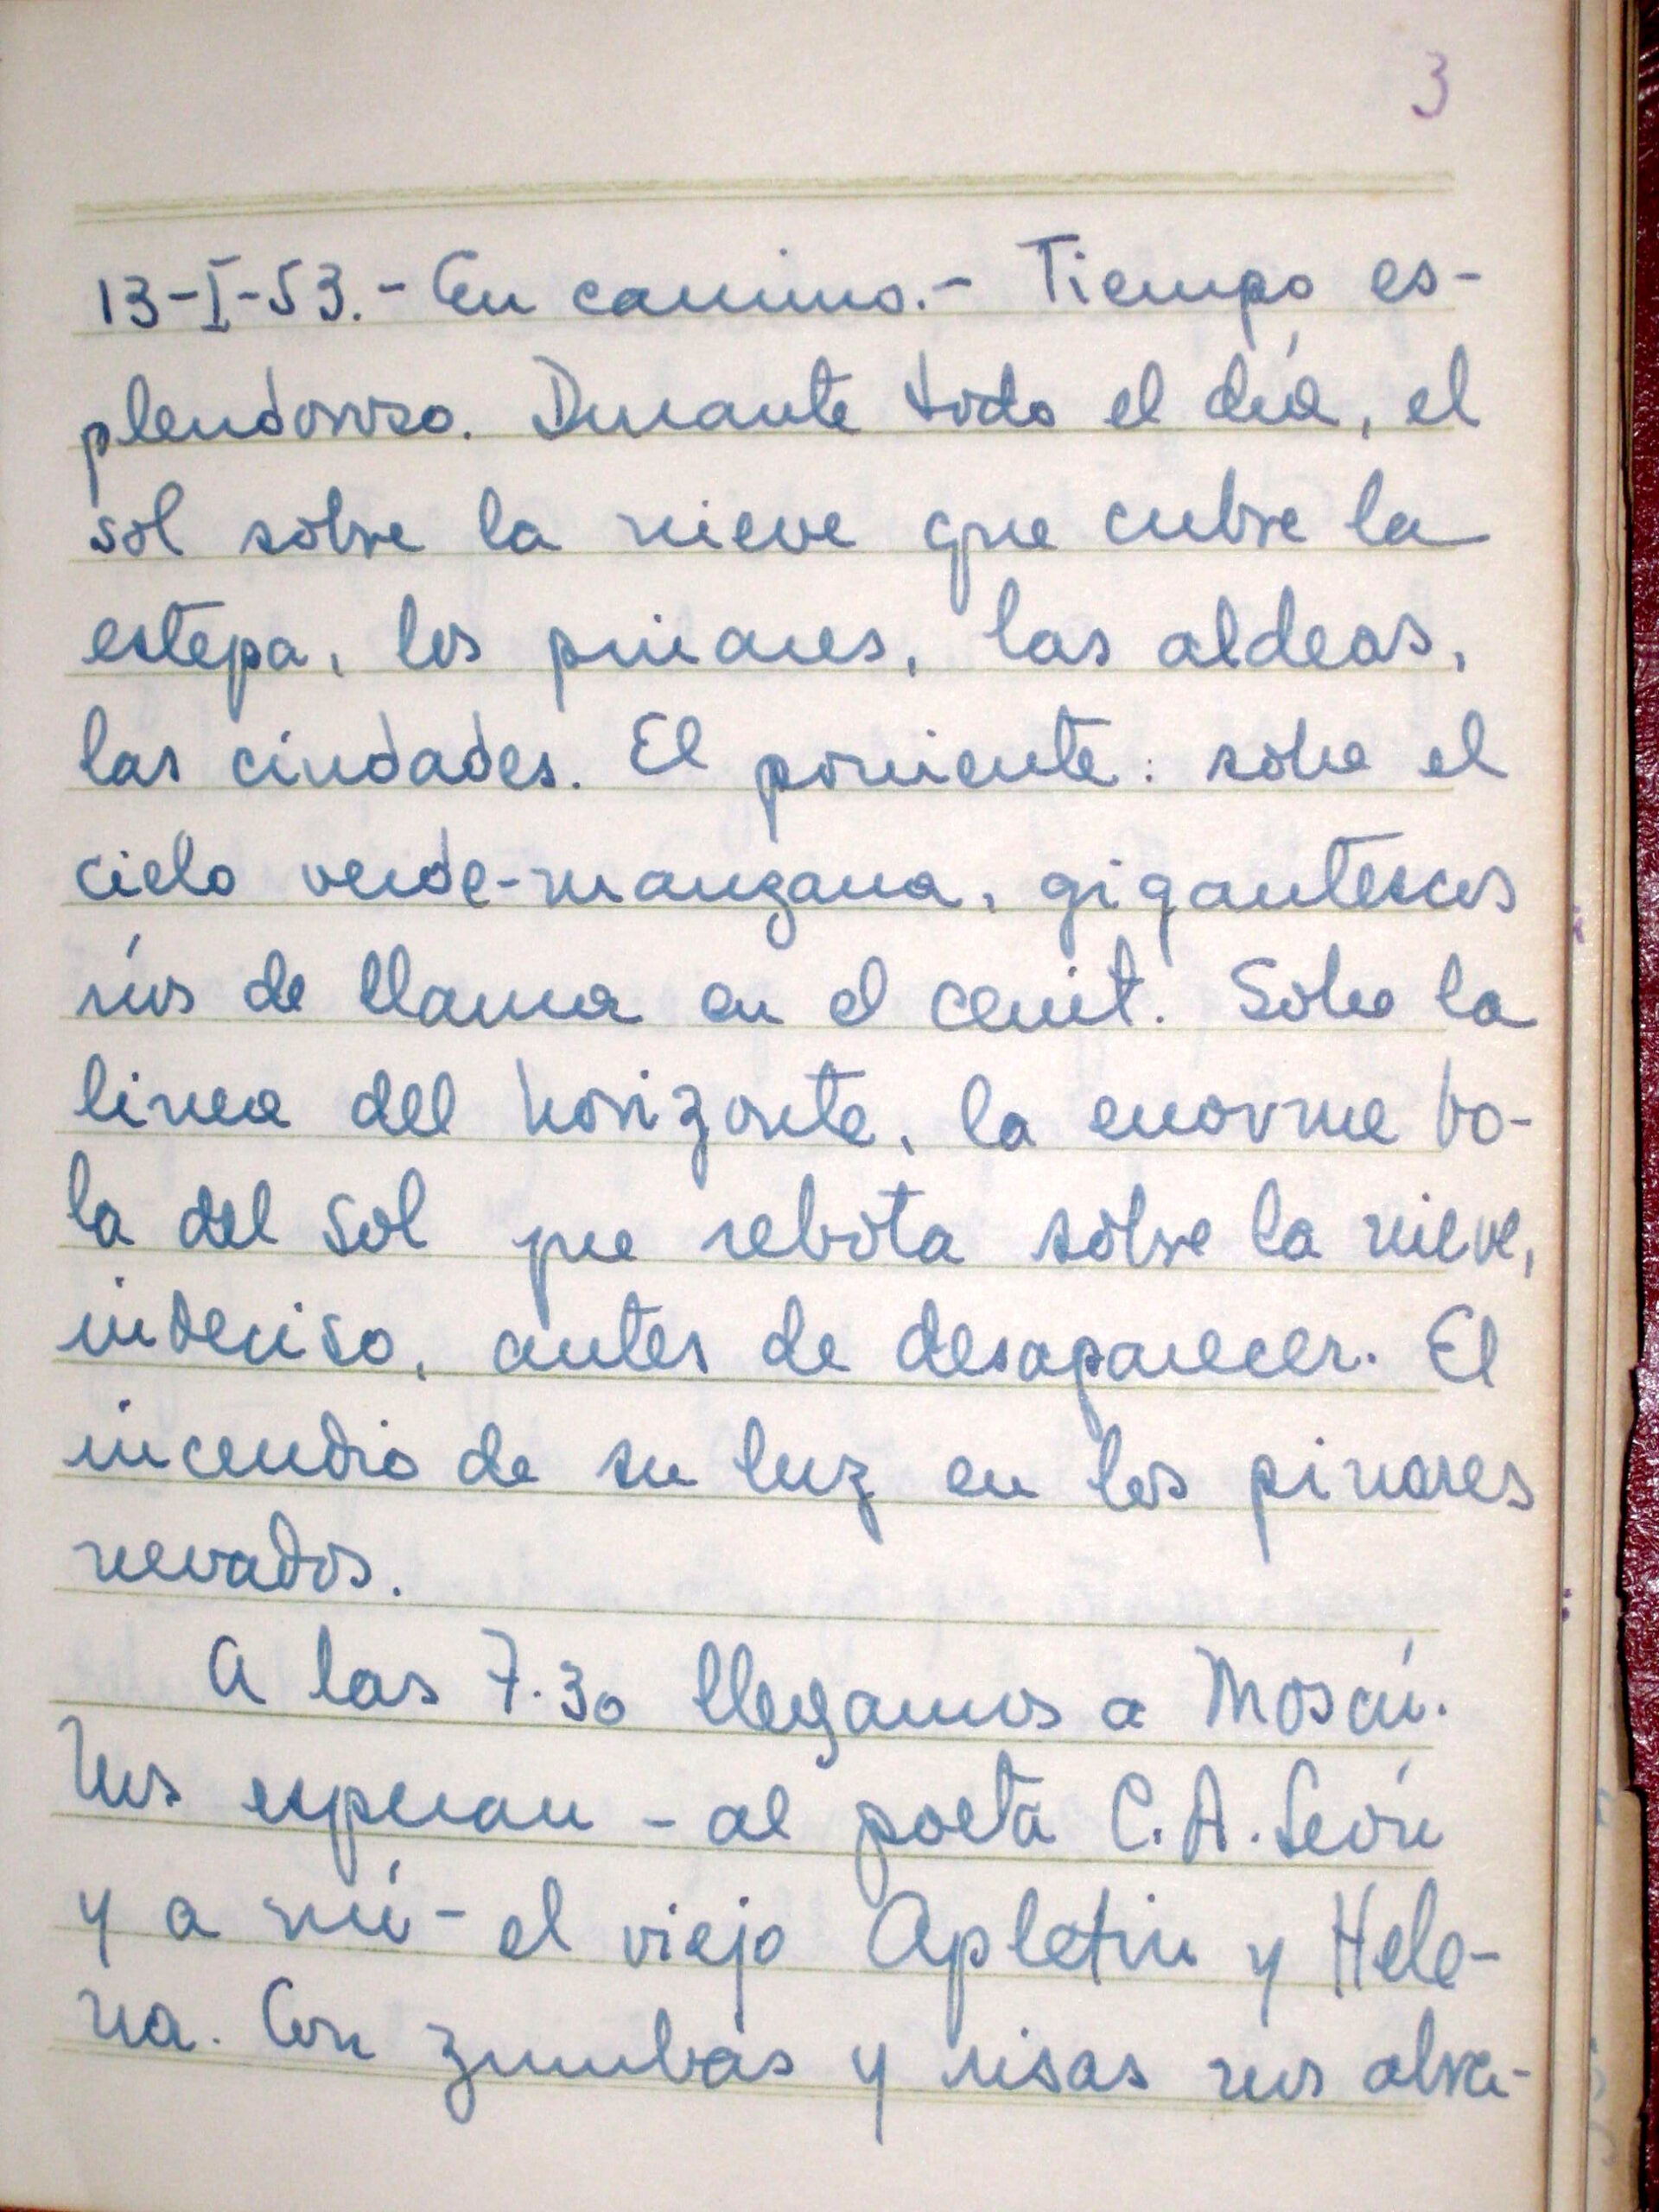 3
13-I-53.- En camino.- Tiempo es-
plendoroso. Durante todo el día, el
sol sobre la nieve que cubre la
estepa, los pinares, las aldeas,
las ciudades. El poniente: sobre el
cielo verde-manzana, gigantescos
ríos de llama en el cenit. Sobre la
linea del horizonte, la enorme bo-
la del sol que rebota sobre la nieve,
indeciso, antes de desaparecer. El
incendio de su luz en los pinares
nevados.
A las 7.30 llegamos a Moscú.
Nos esperan - al poeta C. A. León
y a mí - el viejo Apletin y Hele-
na. Con zumbas y risas nos abra-